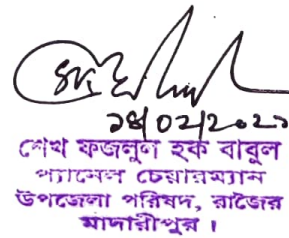 শেখ ফজলুল হক বাবুল
প্যানেল চেয়ারম্যান
উপজেলা পরিষদ, রাজৈর
মাদারীপুর ।